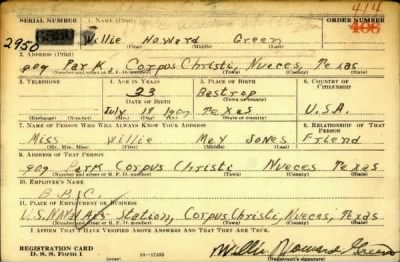 414
SERIAL NUMBER 1. NAME (Print) ORDER NUMBER
2950 Willie Howard Green
(First) (Middle) (Last)
2. ADDRESS (Print)
909 Park, Corpus Christi, Nueces, Texas
(Number and street or R. F. D. number) (Town) (County) (State)
3. TELEPHONE 4. AGE IN YEARS 5. PLACE OF BIRTH 6. COUNTRY OF CITIZENSHIP
33 Bastrop
DATE OF BIRTH (Town or county)
July 18 1907 Texas U.S.A.
(Exchange) (Number) (Mo.) (Day) (Yr.) (State or country)
7. NAME OF PERSON WHO WILL ALWAYS KNOW YOUR ADDRESS 8. RELATIONSHIP OF THAT PERSON
Miss Willie May Jones Friend
(Mr., Mrs., Miss) (First) (Middle) (Last)
9. ADDRESS OF THAT PERSON
909 Park Corpus Christi Nueces Texas
(Number and street or R. F. D. number) (Town) (County) (State)
10. EMPLOYER'S NAME
B.B.C.
11. PLACE OF EMPLOYMENT OR BUSINESS
U.S. Naval Air Station, Corpus Christi, Nueces, Texas
(Number and street or R. F. D. number) (Town) (County) (State)
I AFFIRM THAT I HAVE VERIFIED ABOVE ANSWERS AND THAT THEY ARE TRUE.
REGISTRATION CARD
D. S. S. FORM 1 (over) Willie Howard Green
(Registrant's signature)